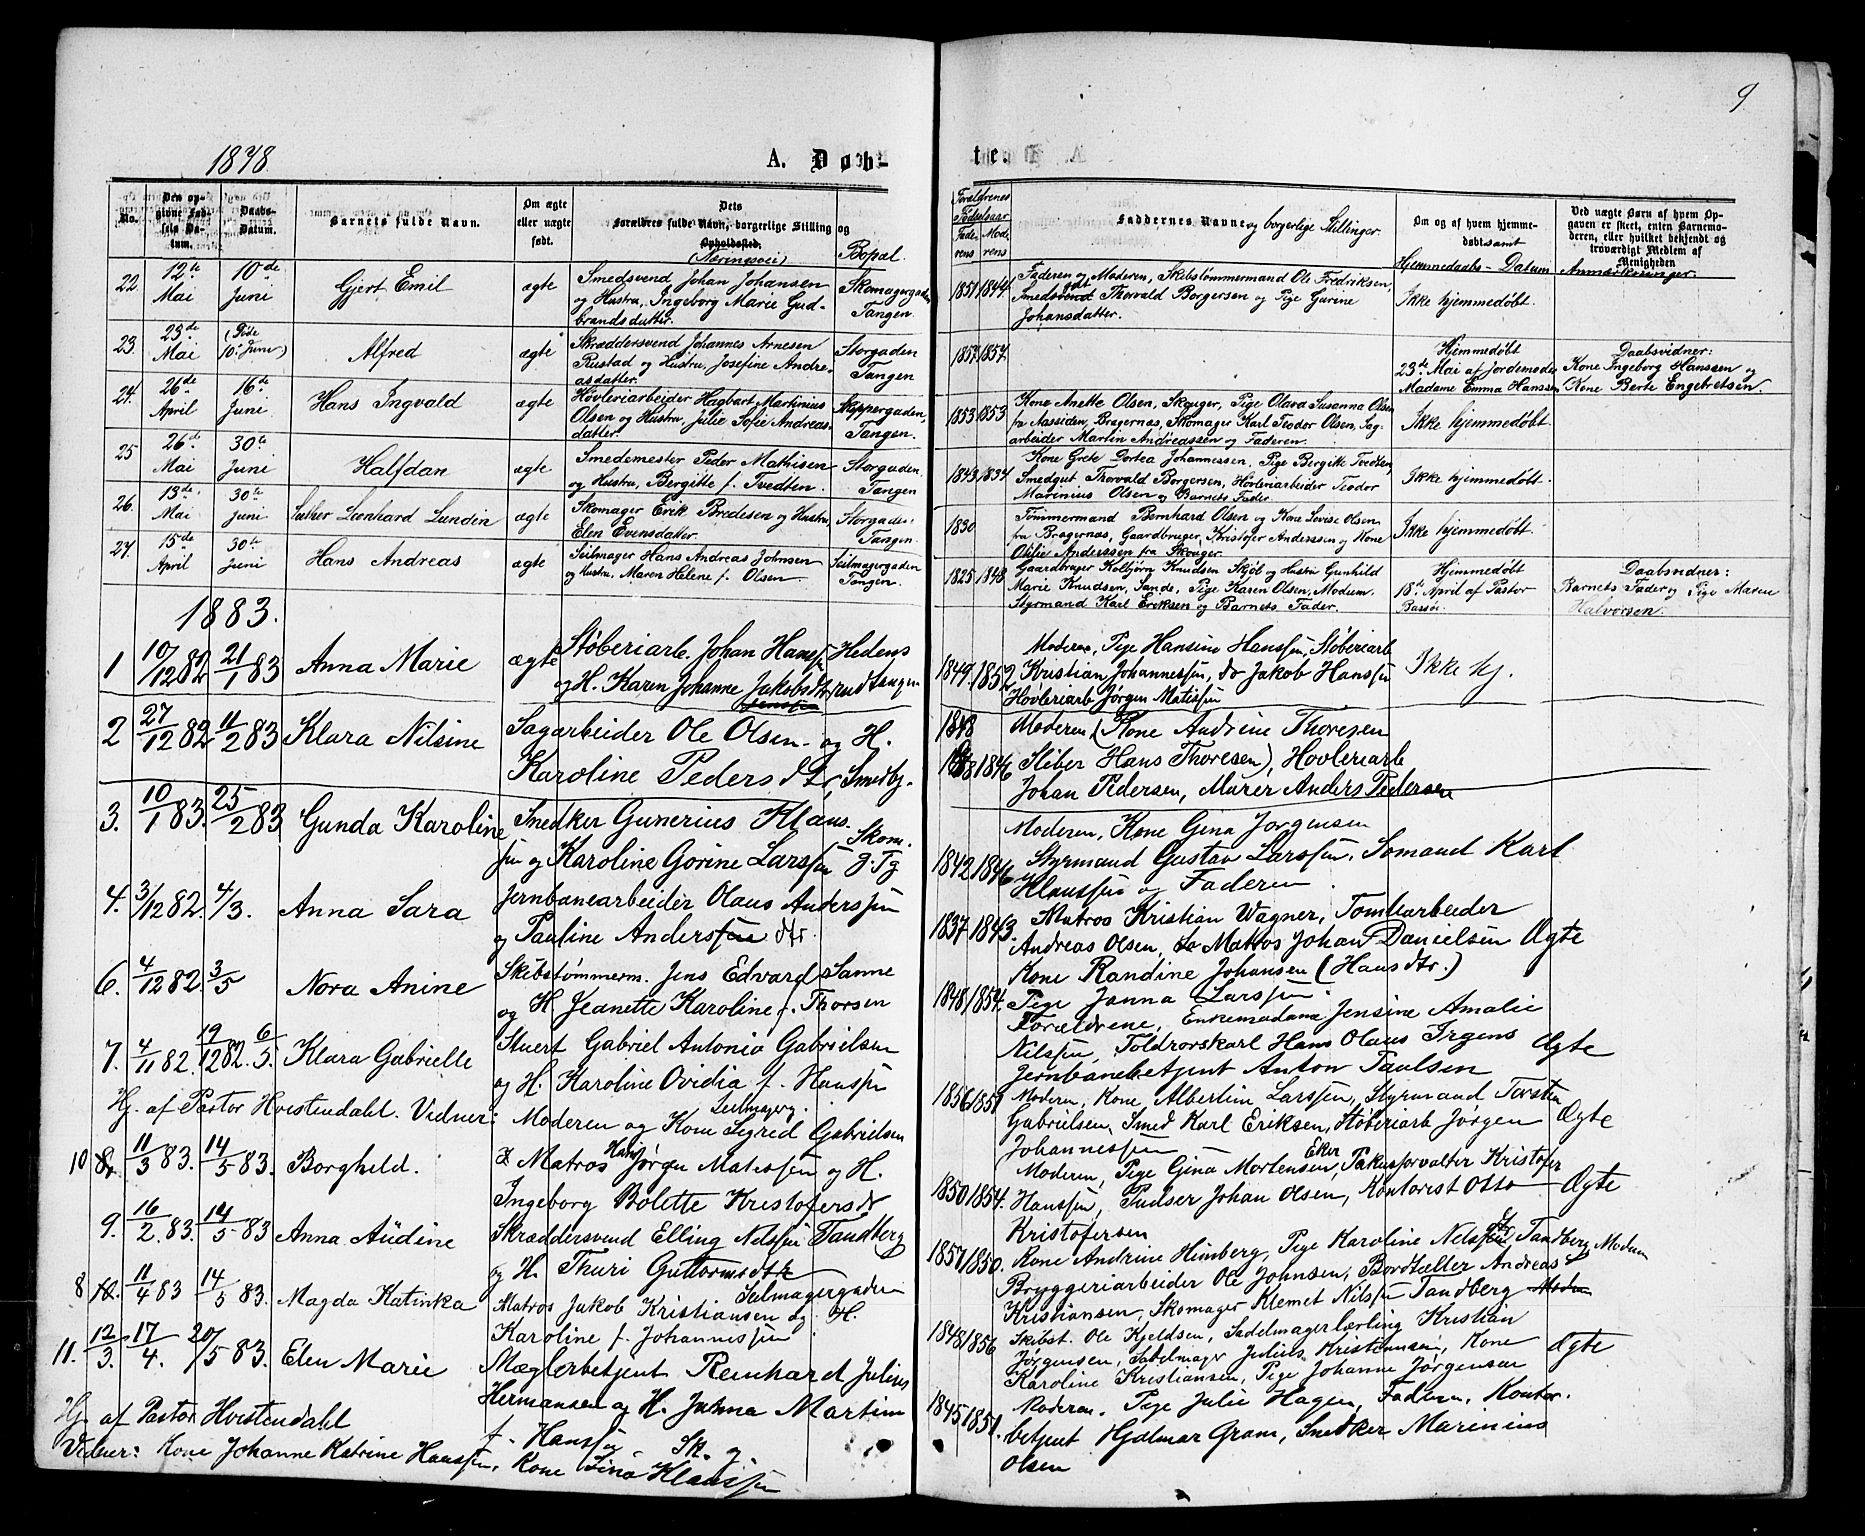 9
1878.
A. Døb-
te.
No.
Den op-
givne Fød-
sels Da-
tum.
Daabs-
Datum.
Barnets fulde Navn.
Om ægte
eller uægte
født.
Dets
Forældres fulde Navn, borgerlige Stilling og
Opholdssted.
(Næringsvei)
Bopæl.
Forældrenes
Fødselsaar
Fade-
rens
Mode-
rens
Faddernes Navne og borgerlige Stillinger.
Om og af hvem hjemme-
døbt samt
Hjemmedaabs-Datum
Ved uægte Børn af hvem Op-
gaven er skeet, enten Barnemo-
deren, eller hvilket bekjendt og
troværdigt Medlem af
Menigheden
Anmærkninger.
22.
12te
Mai
10de
Juni
Gjert Emil
ægte
Smedsvend Johan Johansen
og Hustru, Ingeborg Marie Gud-
brandsdatter.
Skomagergaden
Tangen.
1851
1844
Faderen og Moderen, Skibstømmermand Ole Fredriksen,
Smedsvend Thorvald Borgersen og Pige Gurine
Johansdatter.
Ikke hjemmedøbt.
23.
23de
Mai
10de Juni)
Alfred
ægte
Skræddersvend Johannes Arnesen
Rustad og Hustru, Josefine Andre-
asdatter.
Storgaden
Tangen
1857
1857.
Hjemmedøbt
23de Mai af Jordemoder
Madame Emma Hanssen
Daabsvidner:
Kone Ingeborg Hansen og
Kone Berte Engebretsen.
24.
26de
April
16de
Juni
Hans Ingvald
ægte
Høvleriarbeider Hagbart Martinius
Olsen og Hustru, Julie Sofie Andreas-
datter.
Skippergaden,
Tangen.
1853
1853
Kone Anette Olsen, Skouger, Pige Olava Susanna Olsen
fra Aassiden, Bragernæs, Skomager Karl Teodor Olsen, Sag-
arbeider Martin Andreassen og Faderen.
Ikke hjemmedøbt.
25
26de
Mai
30te
Juni
Halfdan
ægte
Smedemester Peder Mathisen
og Hustru, Bergitte f. Tvedten.
Storgaden.
Tangen
1843
1837
Kone Grete Dortea Johannessen, Pige Bergitte Tvedten,
Smedgut Thorvald Borgersen, Høvleriarbeider Teodor
Marinius Olsen og Barnets Fader.
Ikke hjemmedøbt.
26.
13de
Mai
30te
Juni
Luther Leonhard Lundin
ægte
Skomager Erik Bredesen og Hustru,
Elen Evensdatter.
Storgaden.
Tangen
1830
Tømmermand Bernhard Olsen og Kone Lovise Olsen
fra Bragernæs, Gaardbruger, Kristofer Anderssen og Kone
Olifie Anderssen fra Skouger.
Ikke hjemmedøbt.
27.
15de
April
30te
Juni
Hans Andreas
ægte
Seilmager Hans Andreas Johnsen
og Hustru, Maren Helene f. Olsen.
Seilmagergaden
Tangen.
1825
1848
Gaardbruger Kolbjørn Knudsen Skjøl og Hustru Gunhild
Marie Knudsen, Sande, Pige Karen Olsen, Modum.
Styrmand Karl Eriksen og Barnets Fader.
Hjemmedøbt
18de April af Pastor
Bassøe.
Daabsvidner:
Barnets Fader og Pige Maren
Halvorsen.
1883.
1
10/12 82
21/1 83
Anna Marie
ægte
Støberiarb. Johan Hanssen
og H. Karen Johanne Jakobsdtr
Jenssen
Hedens
rud Tangen
1849.
1852.
Moderen, Pige Hansine Hanssen, Støberiarb
Kristian Johannessen, do Jakob Hanssen
Høvleriarb Jørgen Matissen
Ikke hj.
2
27/12 82
11/2 83
Klara Nilsine
Sagarbeider Ole Olsen og H.
Karoline Pedersdtr, Smedbj.
1848
1846
Moderen (Kone Andrine Thoresen
Støber Hans Thoresen), Høvleriarb
Johan Pedersen, Murer Anders Pedersen
3.
10/1 83.
25/2 83
Gunda Karoline
Snedker Gunerius Klaus-
sen og Karoline Gorine Larssen
Skom.
g. Tg
1842
1846
Moderen, Kone Gina Jørgensen
Styrmand Gustav Larssen, Sømand Karl
Klaussen og Faderen.
4.
3/12 82.
4/3.
Anna Sara
Jernbanearbeider Olaus Anderssen
og Pauline Anderssen dtr.
1837
1843.
Matros Kristian Wagner, Tomtearbeider
Andreas Olsen, do Matros Johan Danielsen
Kone Randine Johansen (Hansdtr.)
Pige Janna Larssen.
Ægte
6.
4/12 82.
3/5
Nora Anine
Skibstømmerm. Jens Edvard Sanne
og H. Jeanette Karoline f. Thorsen
1848
1854.
Forældrene, Enkemadame Jensine Amalie
Nilssen, Toldrorskarl Hans Olaus Irgens
Jernbanebetjent Anton Paulsen
Ægte
7.
4/11 82.
19/12 82.
6/5.
Klara Gabrielle
Stuert Gabriel Antonio Gabrielsen
og H. Karoline Ovidia f. Hanssen
Hj. af Pastor Hvistendahl. Vidner: Moderen og Kone Sigrid Gabrielsen
Seilmagerg.
1856
1857
Moderen, Kone Albertine Larssen, Styrmand Torsten
Gabrielsen, Smed Karl Eriksen, Støberiarb Jørgen
Johannessen
Ægte
10
8.
11/3 83.
14/5 83.
Borghild.
Matros Hans Jørgen Matissen og H.
Ingeborg Bolette Kristofersdtr
1850
1854.
Moderen, Pige Gina Mortensen, Eker Pakhusforvalter Kristofer
Hanssen, Pudser Johan Olsen, Kontorist Otto
Kristofersen
Ægte
9.
16/2 83.
14/5 83
Anna Audine
Skræddersvend Elling Nilssen Tandberg
og H. Thuri Guttormsdtr
1857
1850.
Kone Andrine Himberg, Pige Karoline Nilssen Tandberg, Modum
Bryggeriarbeider Ole Johnsen, Andreas
Kristiansen, Skomager Klemet Nilssen Tandberg Modum
8
10.
11/4 83
14/5 83.
Magda Katinka
Matros Jakob Kristiansen og H.
Seilmagergaden
Karoline f. Johannessen
1848
1856
Skibst. Ole Kjeldsen, Sadelmagerlærling Kristian
Jørgensen, Sadelmager Julius Kristiansen, Kone
Karoline Kristiansen, Pige Johanne Jørgensen
Ægte
11.
12/3.
17/4.
20/5 83.
Elen Marie
Mæglerbetjent Reinhard Julius
Hermansen og H. Johna Martine
f. Hanssen
Hj. af Pastor Hvistendahl
Vidner: Kone Johanne Katrine Hanssen, Kone Lina Klaussen
1845
1851.
Moderen, Pige Julie Hagen, Faderen, Kontor-
betjent Hjalmar Gram, Snedker Marinius
Olsen